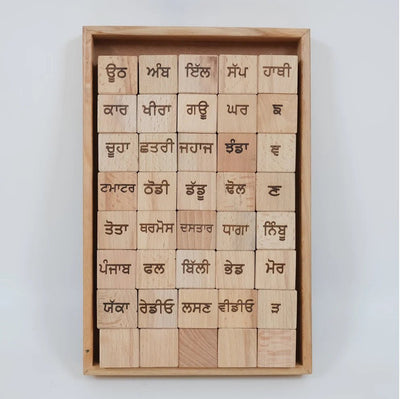 ਊਠ ਅੰਬ ਇੱਲ ਸੱਪ ਹਾਥੀ
ਕਾਰ ਖੀਰਾ ਗਊ ਘਰ ਙ
ਚੂਹਾ ਛਤਰੀ ਜਹਾਜ ਝੰਡਾ ਞ
ਟਮਾਟਰ ਠੋਡੀ ਡੱਡੂ ਢੋਲ ਣ
ਤੋਤਾ ਥਰਮੋਸ ਦਸਤਾਰ ਧਾਗਾ ਨਿੰਬੂ
ਪੰਜਾਬ ਫਲ ਬਿੱਲੀ ਭੇਡ ਮੋਰ
ਯੱਕਾ ਰੇਡੀਓ ਲਸਣ ਵੀਡੀਓ ੜ